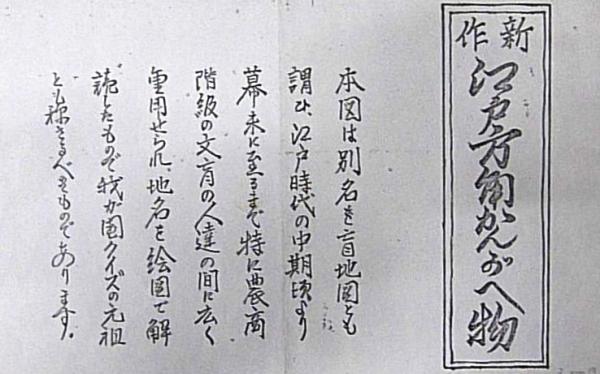 新作
江戸方角かんがへ物
本図は別名を盲地図とも
謂ひ、江戸時代の中期頃より
幕末に至るまで特に農商
階級の文盲の人達の間に広く
重用せられ、地名を絵図で解
読したもので我が国クイズの元祖
とも称さるべきものであります。